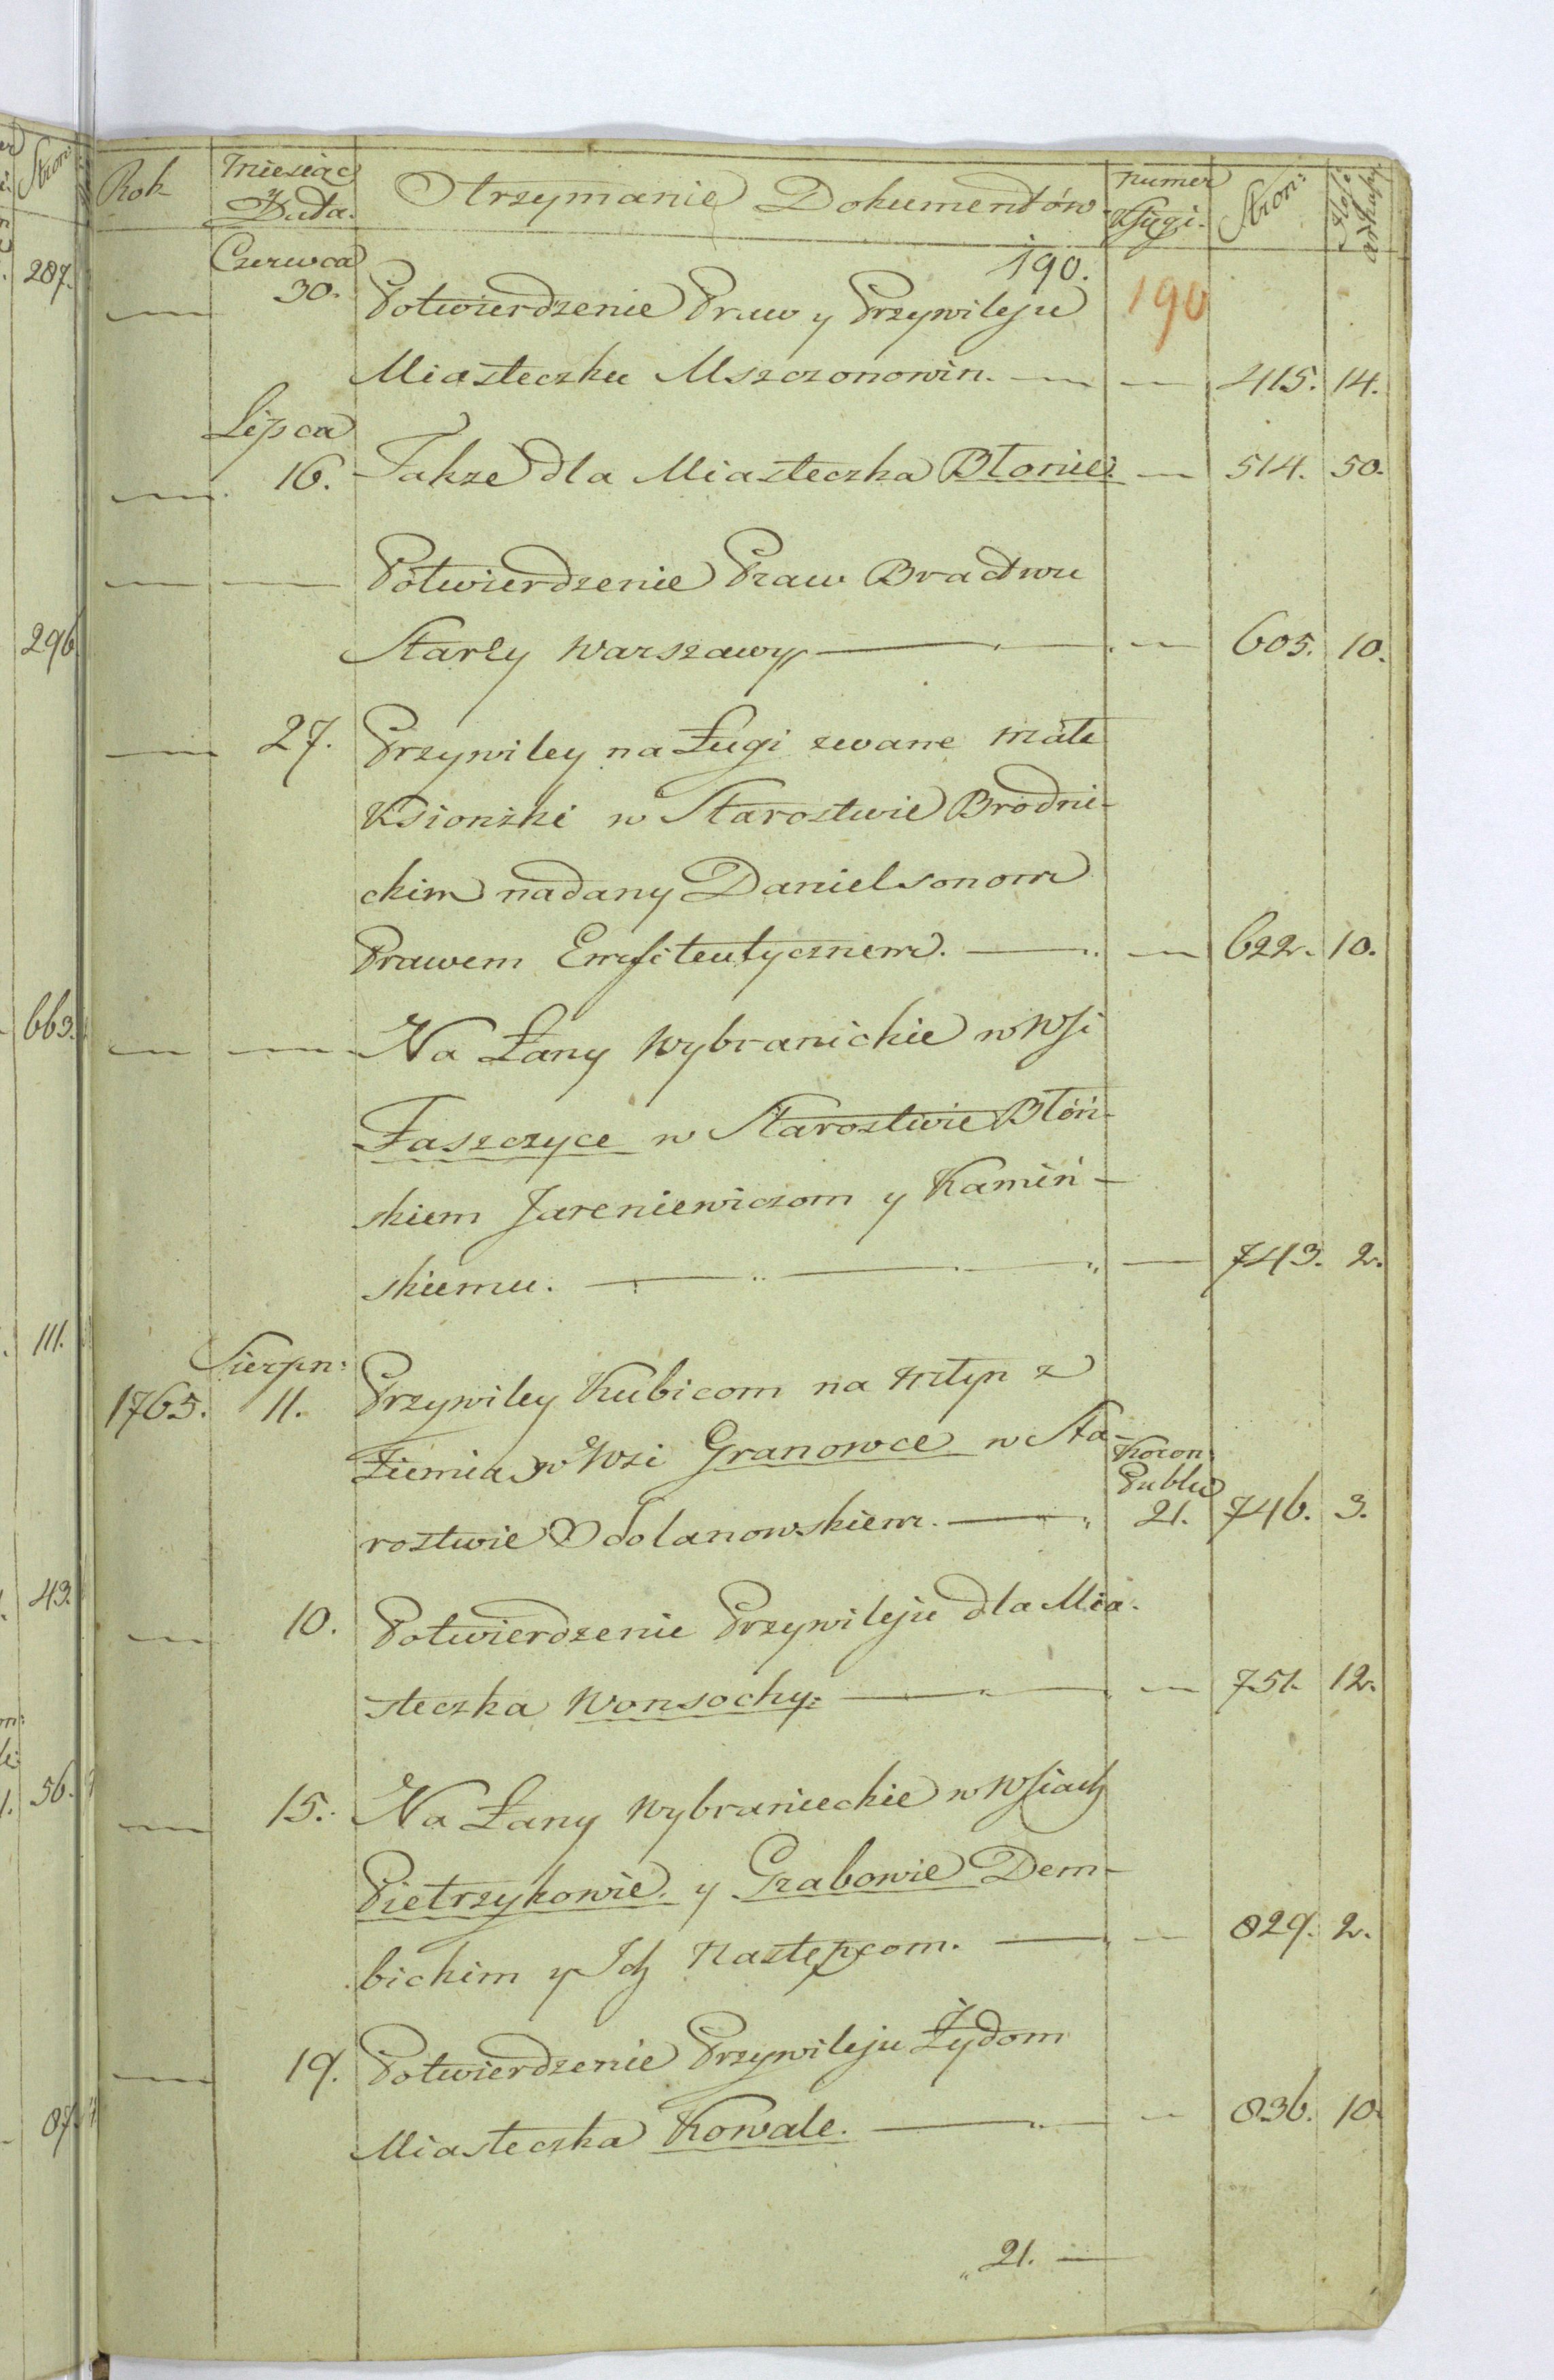 Rok
Miesiąc
y Data.
Otrzymanie Dokumentów
numer
Księgi.
Stron:
190.
190
Czerwca
30. Potwierdzenie Praw y Przywileju
Miasteczku Mszczonowin. — — 415. 14.
Lipca
16. Takze dla Miasteczka Błonie. — 514. 50.
Potwierdzenie Praw Bractwu
Starey Warszawy — — 605. 10.
27. Przywiley na Ługi zwane małe
Ksionżki w Starostwie Brodni-
ckim nadany Danielsonom
Prawem Emfiteutycznem. — — 622. 10.
Na Łany Wybranickie w Wsi
Faszczyce w Starostwie Błoń-
skiem Jareniewiczom y Kamiń-
skiemu. — — 743. 2.
Sierpn:
1765. 11. Przywiley Kubicom na Młyn z
Ziemią w Wsi Granowce w Sta-
Koron:
Publi
rostwie Odolanowskiem. — 21. 746. 3.
10. Potwierdzenie Przywileju dla Mia-
steczka Wonsochy. — — 751. 12.
15. Na Łany Wybranieckie w Wsiach
Pietrzykowie. y Grabowie Dem-
bickim y Ich Następcom. — — 829. 2.
19. Potwierdzenie Przywileju Żydom
Miasteczka Kowale. — — 836. 10.
21. —
Stron:
287.
296
663.
111.
43.
56.
87